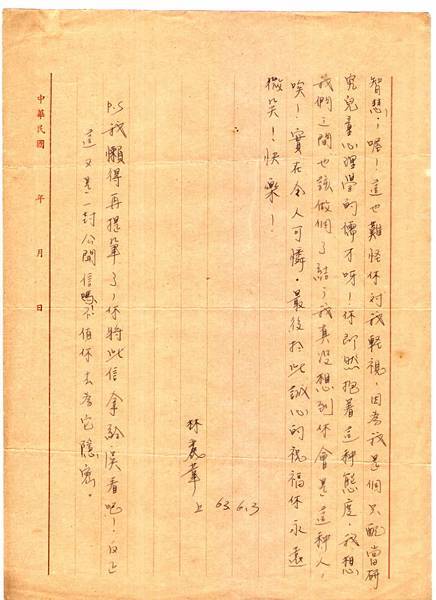 智慧，喔！這也難怪你對我輕視，因為我是個只配當研
究兒童心理學的傳才呀！你即然抱着這种態度，我想
我們之間也該做個了結，我真没想到你會是這种人，
唉！實在令人可憐。最後於此誠心的祝福你永遠
微笑！快樂！
林 華 上 63.6.13
P.S 我懶得再提筆了，你將此信拿給吳看吧！由上
這又是一封公開信嗎不值你去為它隱密。
中華民國 年 月 日